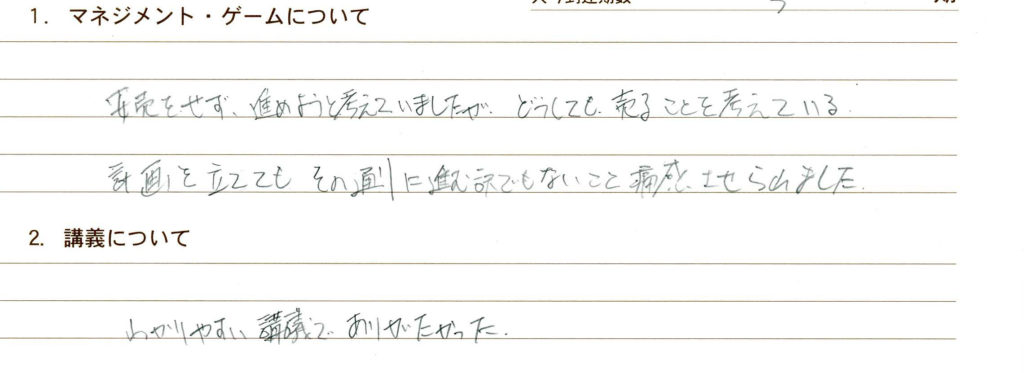 1. マネジメント・ゲームについて
安売をせず、進めようと考えていましたが、どうしても、売ることを考えている.
計画を立ててもその通りに進む訳でもないこと痛感させられました.
2. 講義について
わかりやすい講義でありがたかった.